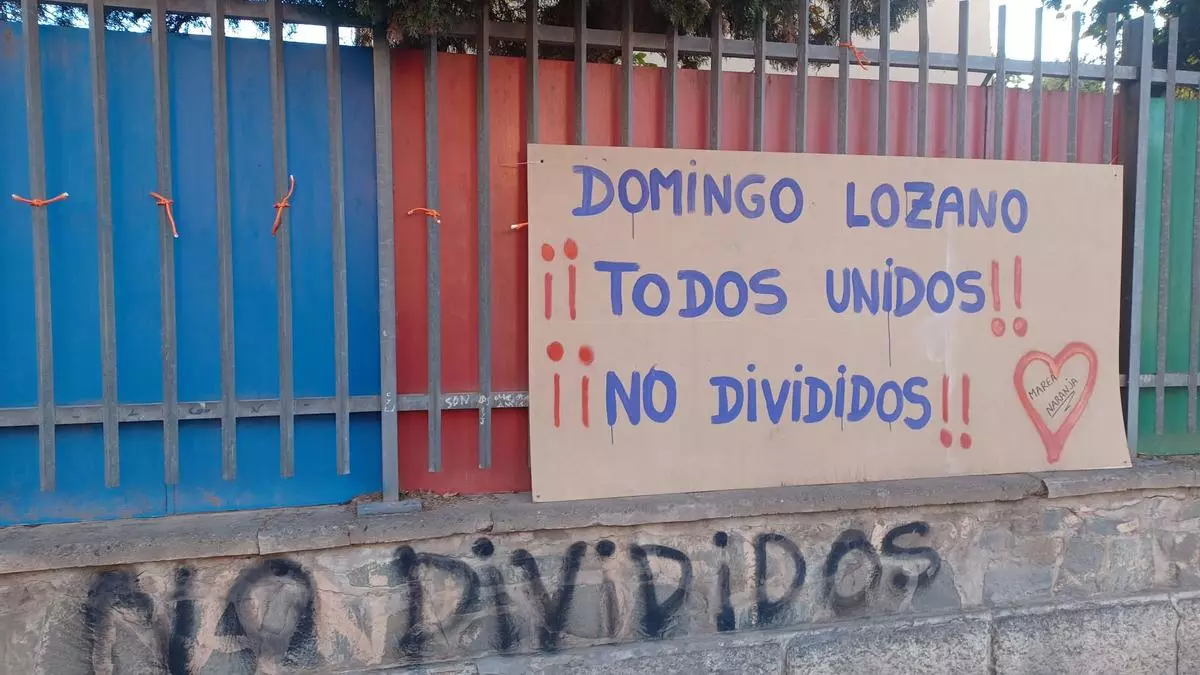 DOMINGO LOZANO
¡¡TODOS UNIDOS!!
¡¡NO DIVIDIDOS!!
MAREA
NARANJA
NO DIVIDIDOS